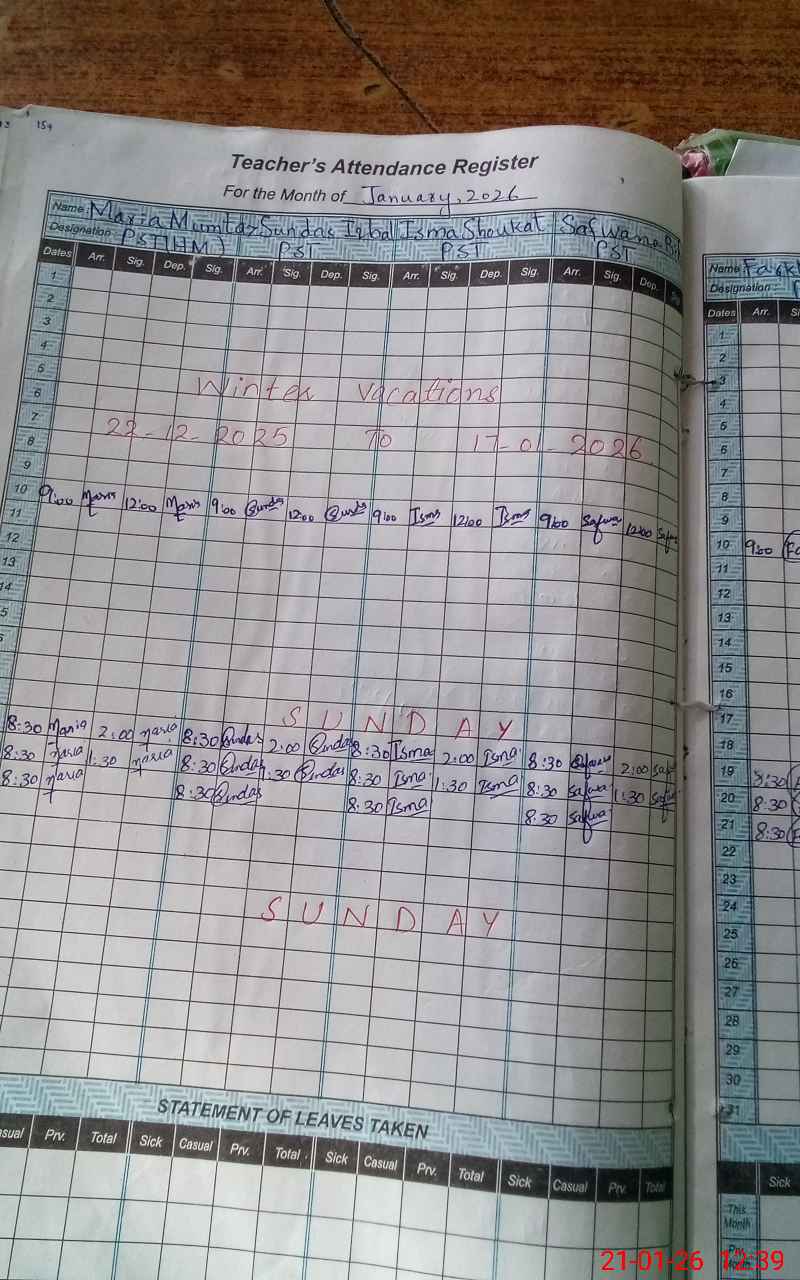 154
Teacher's Attendance Register
For the Month of January, 2026
Name: Maria Mumtaz Sundas Iqbal Isma Shoukat Safwana
Designation: PST(HM) PST PST PST
Dates Arr. Sig. Dep. Sig. Arr. Sig. Dep. Sig. Arr. Sig. Dep. Sig. Arr. Sig. Dep.
1
2
3
4
5
6 Winter Vacations
7
8 22-12-2025 To 17-01-2026
9
10 9:00 Maria 12:00 Maria 9:00 Sundas 12:00 Sundas 9:00 Isma 12:00 Isma 9:00 Safwa 12:00 Safwa
11
12
13
14
5
SUNDAY
8:30 Maria 2:00 Maria 8:30 Sundas 2:00 Sundas 8:30 Isma 2:00 Isma 8:30 Safwa 2:00 Saf
8:30 Maria 1:30 Maria 8:30 Sundas 1:30 Sundas 8:30 Isma 1:30 Isma 8:30 Safwa 1:30 Safwa
8:30 Maria 8:30 Sundas 8:30 Isma 8:30 Safwa
SUNDAY
STATEMENT OF LEAVES TAKEN
Prv. Total Sick Casual Prv. Total Sick Casual Prv. Total Sick Casual Prv. Total
Name
Designation:
Dates Arr.
1
2
3
4
5
6
7
8
9
10 9:00
11
12
13
14
15
16
17
18
19 8:30
20 8:30
21 8:30
22
23
24
25
26
27
28
29
30
31
Sick
This Month
21-01-26 12:39